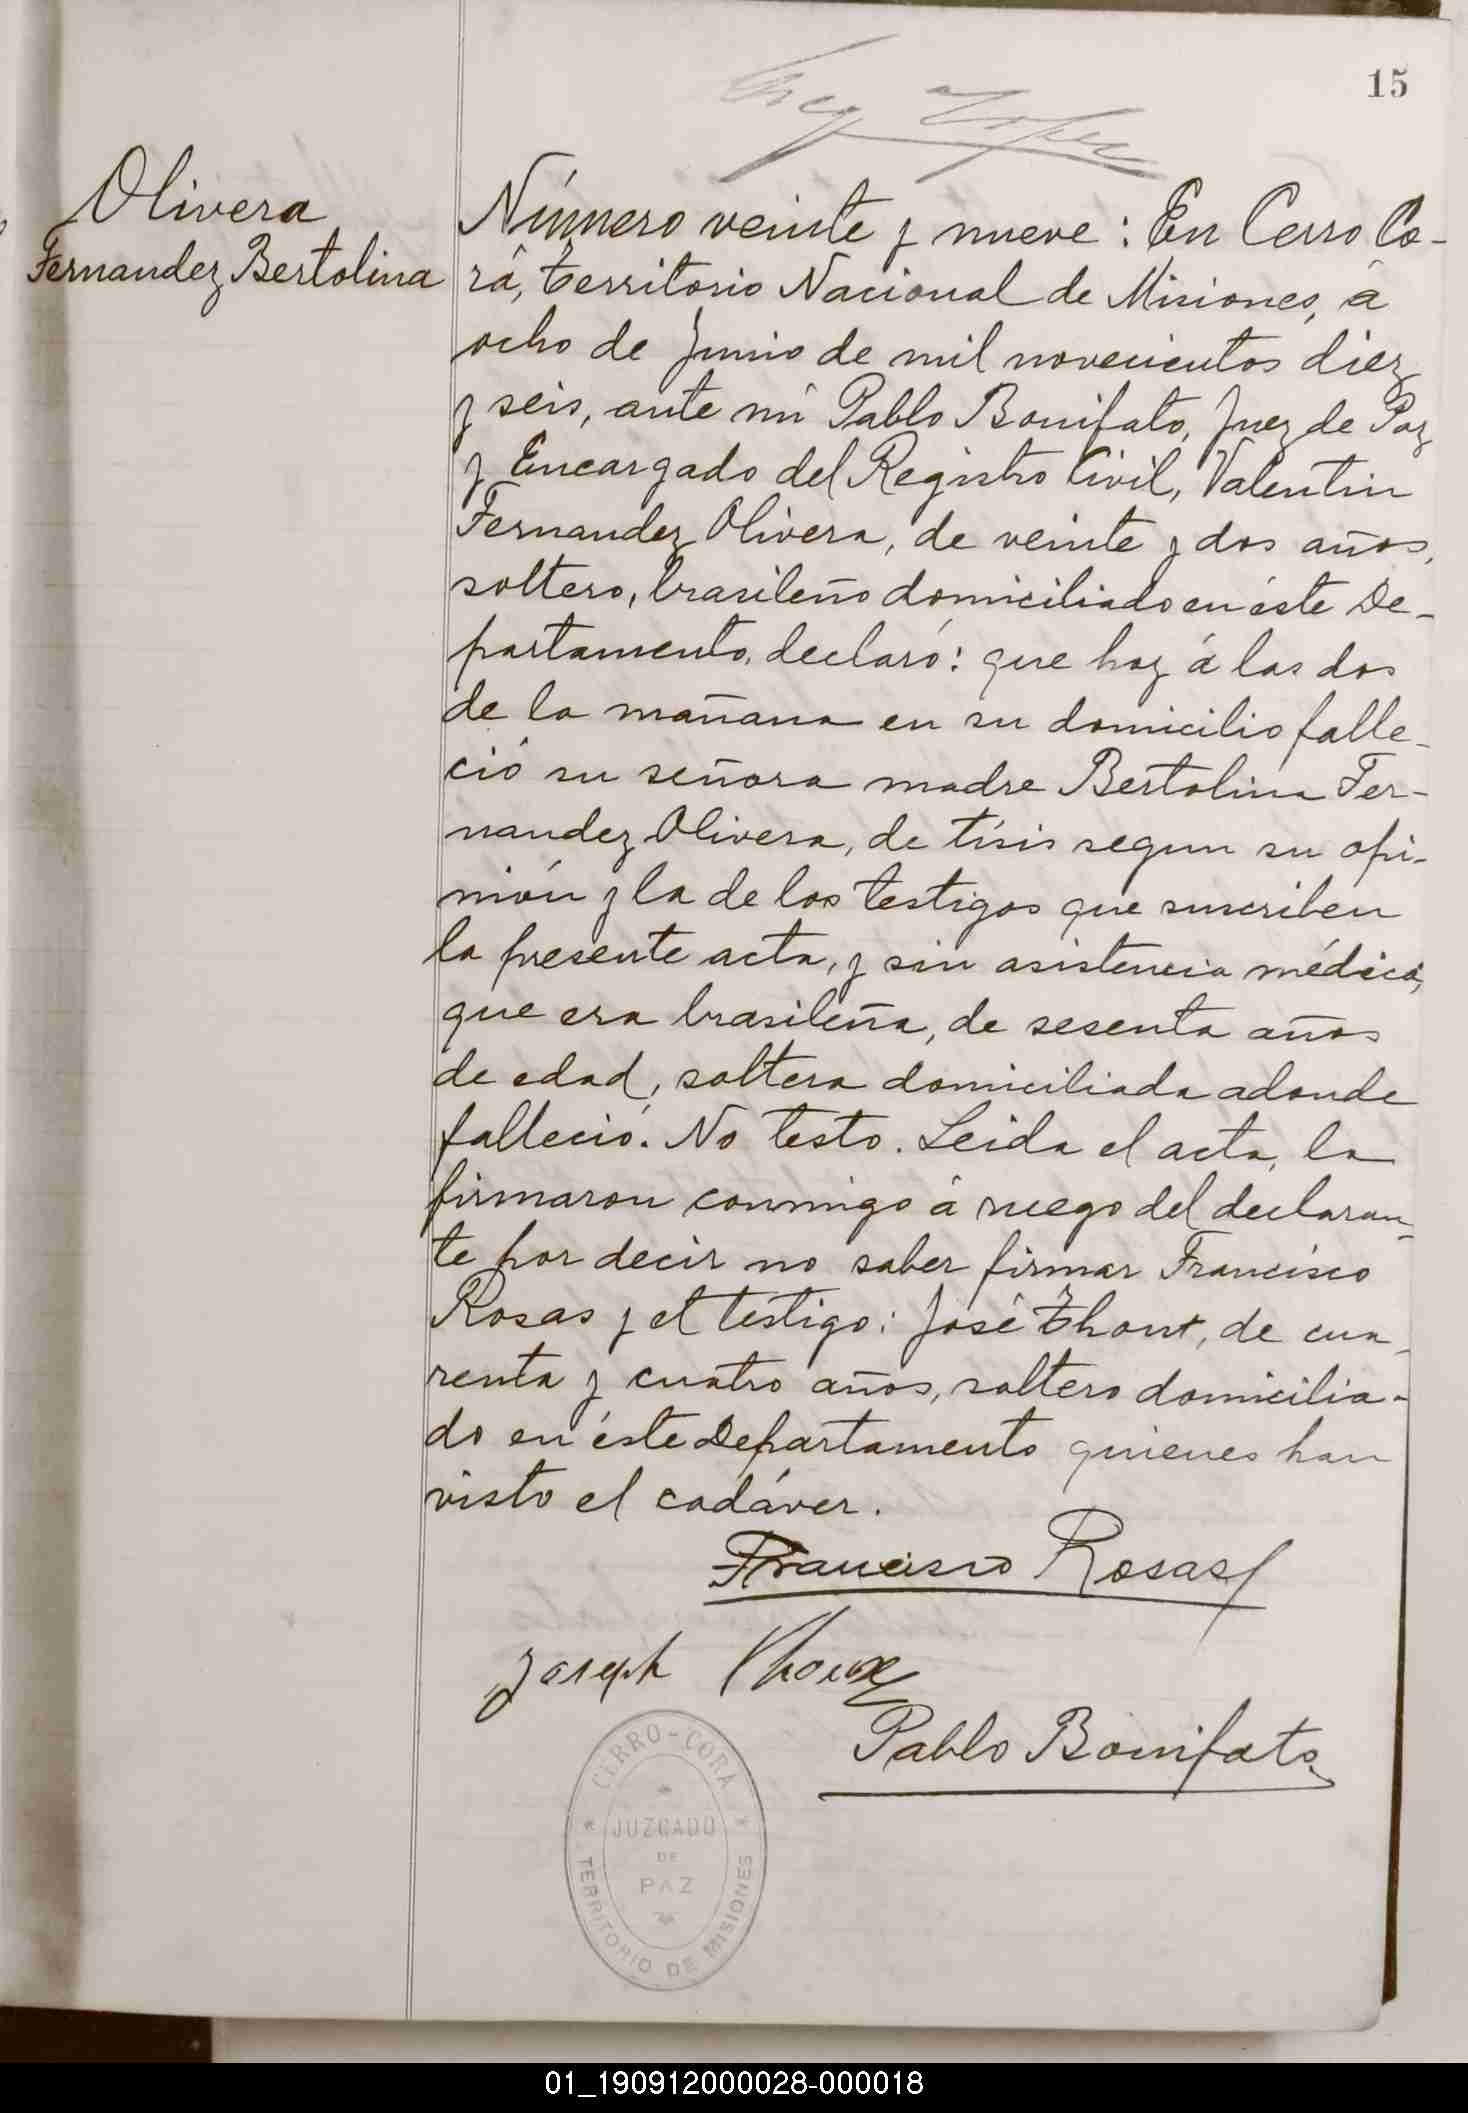 15
Olivera
Fernandez Bertolina
Número veinte y nueve: En Cerro Co-
rá, territorio Nacional de Misiones, á
ocho de Junio de mil novecientos diez
y seis, ante mi Pablo Bonifato, Juez de Paz
y Encargado del Registro Civil, Valentin
Fernandez Olivera, de veinte y dos años,
soltero, brasileño domiciliado en éste De-
partamento, declaró: que hoy á las dos
de la mañana en su domicilio falle-
ció su señora madre Bertolina Fer-
nandez Olivera, de tísis segun su opi-
nión y la de los testigos que suscriben
la presente acta, y sin asistencia médica,
que era brasileña, de sesenta años
de edad, soltera domiciliada adonde
falleció. No testo. Leida el acta, la
firmaron conmigo á ruego del declaran-
te por decir no saber firmar Francisco
Rosas y el testigo: José Thoux, de cua-
renta y cuatro años, soltero domicilia-
do en éste Departamento quienes han
visto el cadáver.
Francisco Rosas
Joseph Thoux
Pablo Bonifato
CERRO-CORA
JUZGADO
DE
PAZ
TERRITORIO DE MISIONES
01_190912000028-000018